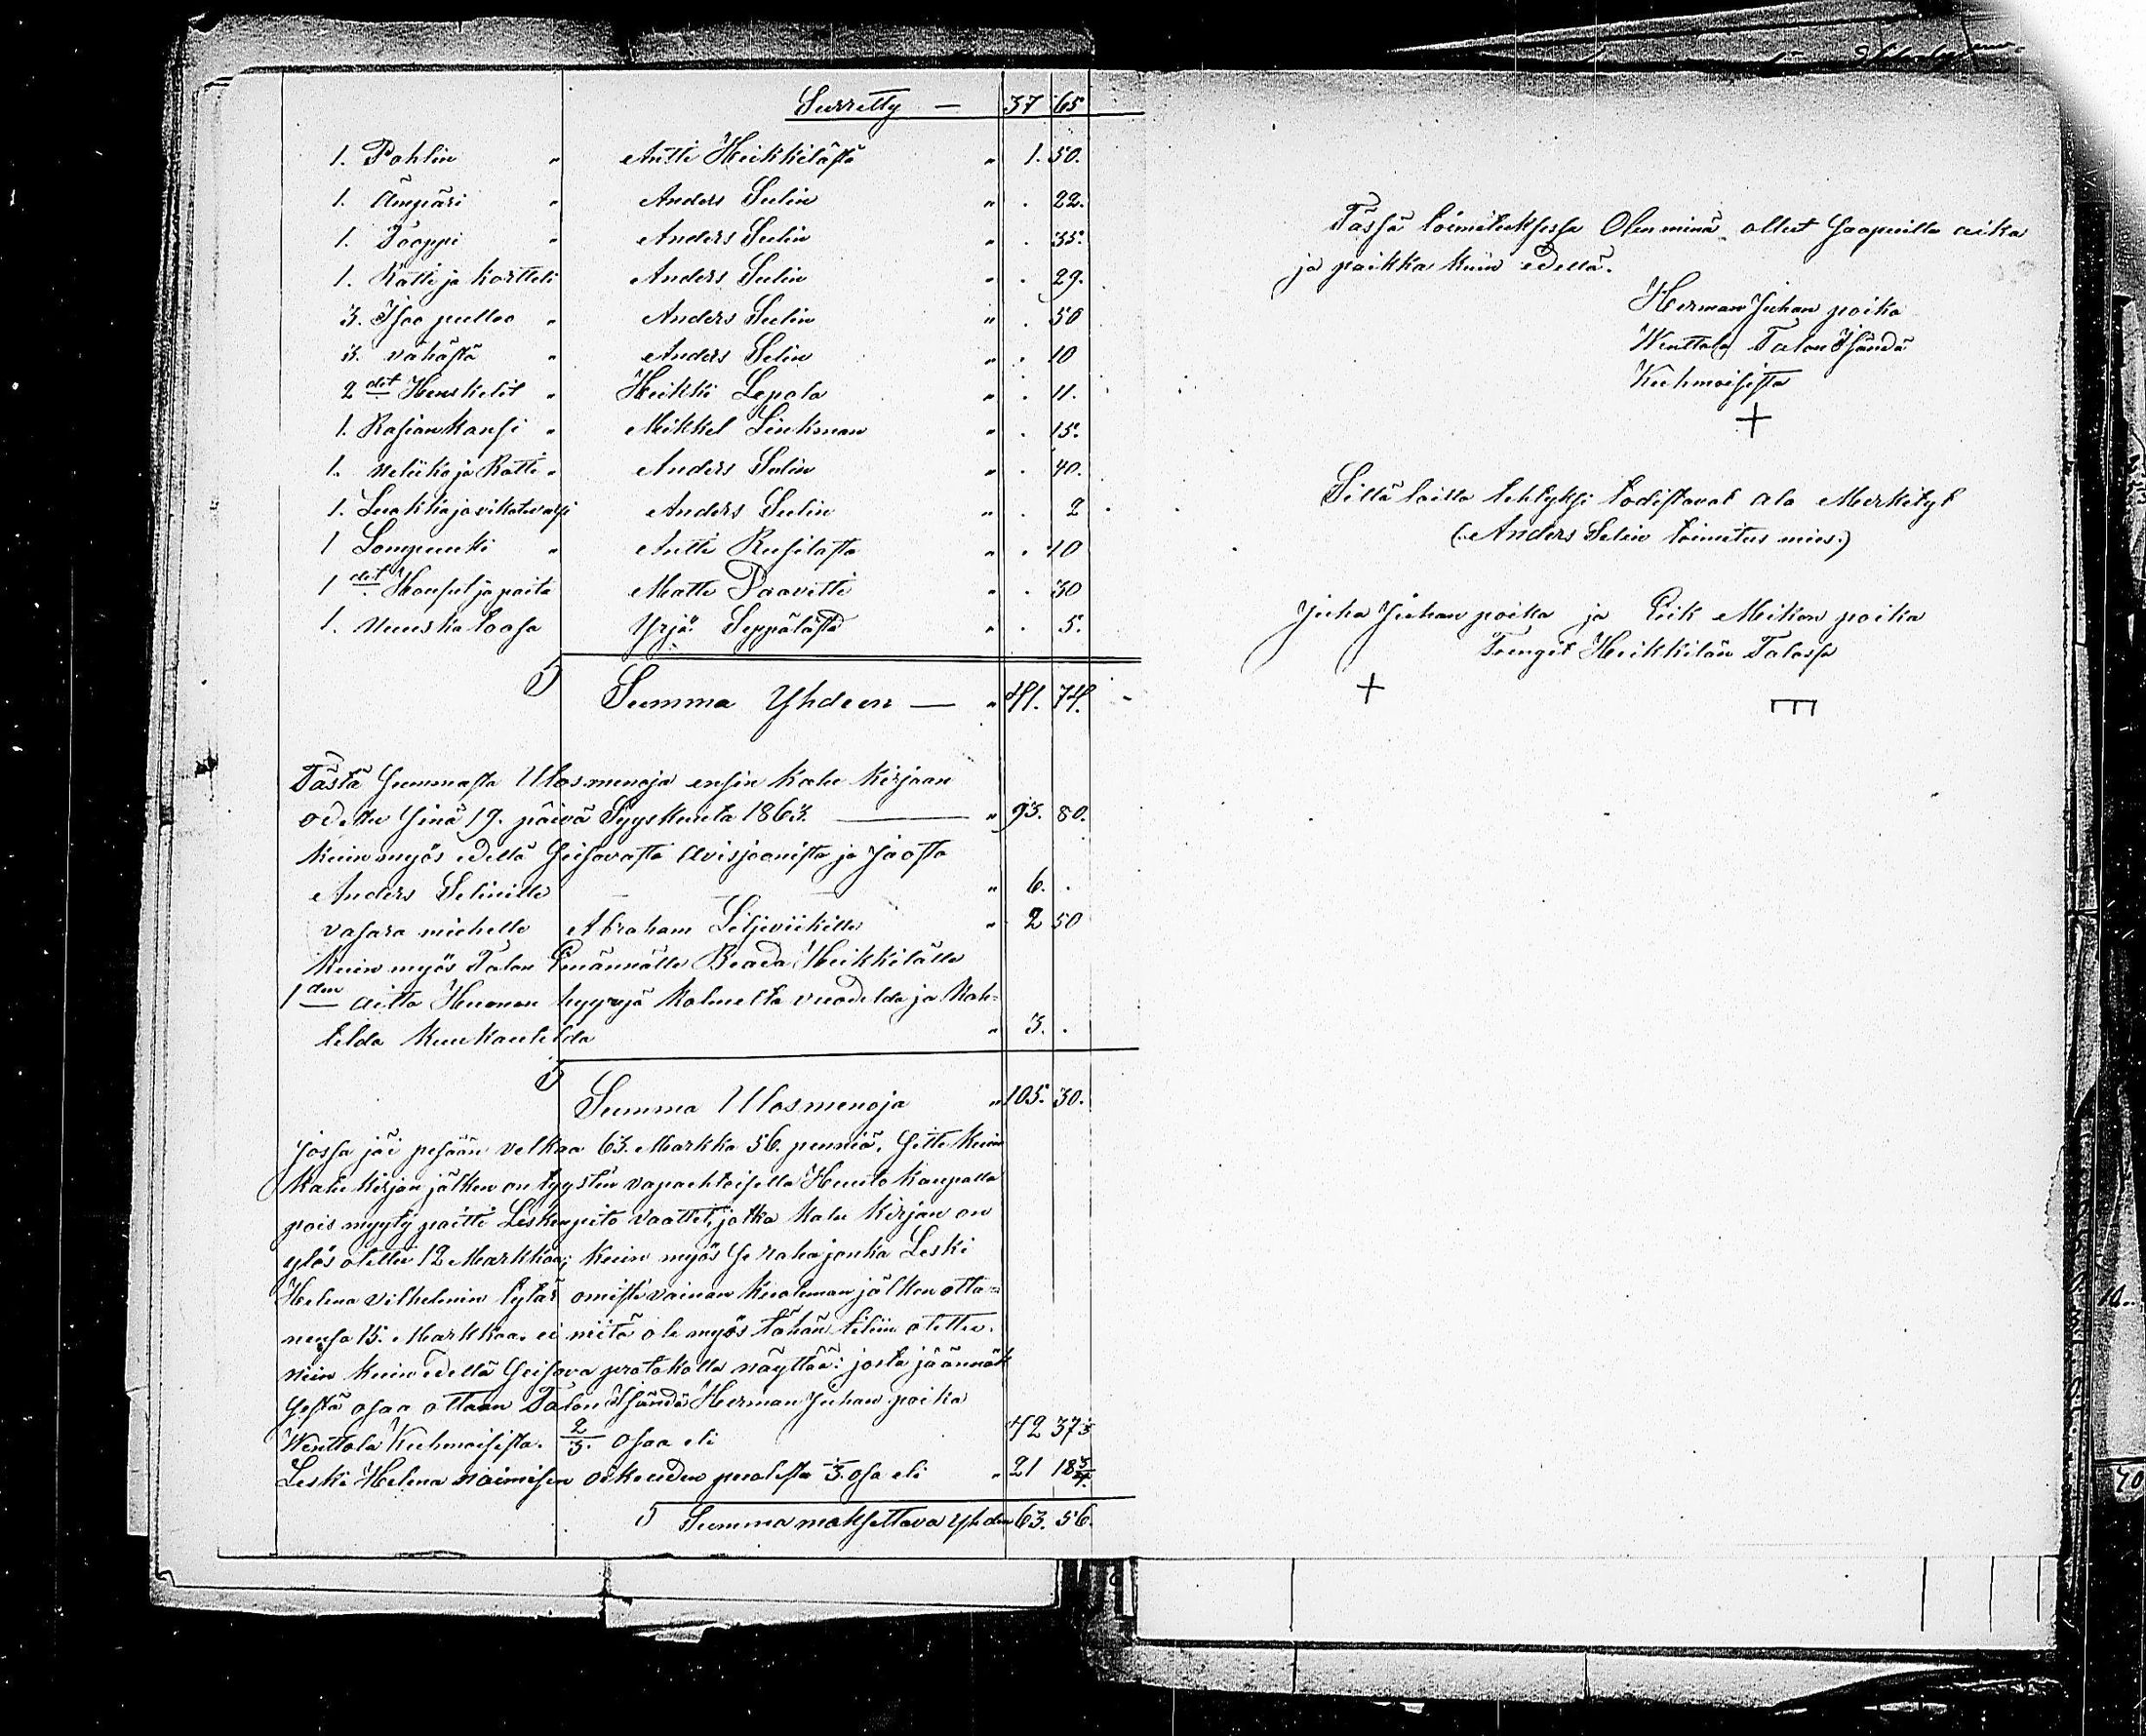 Siirretty — 37 65
1. Pohlin " Antti Heikkilästä " 1. 50.
1. Ämpäri " Anders Selin " . 22.
1. Tooppi " Anders Selin " . 35.
1. Kätti ja kortteli Anders Selin " . 29.
3. Isoa pulloa " Anders Selin " . 50
3. vähästä " Anders Selin " . 10
2 det Henskelit " Heikki Lepola " . 11.
1. Rasian kansi " Mikkel Linkman " . 15.
1. neliika ja Rotti " Anders Selin " . 40.
1. Luokka ja vikatevarsi Anders Selin " . 2
1 Sompuuki " Antti Rusilasta " . 10
1 det Housut ja paita Matti Paavitti " . 30
1. nuuska toosa Yrjä Seppälästä " . 5.
S Summa Yhdeen — " 41. 74.
Tästä Summasta Ulosmenoja ensin kalu kirjaan
otettu Sinä 19. päivä Syyskuuta 1863. — " 93. 80.
kuin myös edellä Seisovasta Avisjoonista ja Jaosta
Anders Selinille — " 6. .
vasara miehelle Abraham Liljeviikille " 2 50
kuin myös Talon Emännälle Beada Heikkilälle
1 den aitta Huonen hyyryjä kolmelta vuodelda ja kah=
telda kuukaudelda " 3. .
S Summa Ulosmenoja " 105. 30.
jossa jäi pesään velkaa 63. Markka 56. penniä. Sitte kuin
kalu kirjan jälken on tyystin vapaehtoisella Huuto kaupalla
pois myyty paitti Lesken pito vaattet, jotka kalu kirjan on
ylös otettu 12 Markkaa; kuin myös Se raha jonka Leski
Helena vilhelmin tytär omisti vainan kuoleman jälken otta=
neensa 15. Markkaa. ei niitä ole myös tähän tiliin otettu.
niin kuin edellä Seisova protokolla näyttää: josta jäännök
sestä osaa ottaan Talon Isändä Herman Juhan poika
Wenttola Kuhmoisista. 2/3. osaa eli 42 37 1/3
Leski Helena naimisen oikeuden puolesta 1/3. osa eli " 21 18 3/4.
S Summa maksettava Yhden 63. 56.
Tässä toimituksessa Olen minä ollut Saapuilla aika
ja paikka kuin edellä.
Herman Juhan poika
Wenttola Talon Isändä
Kuhmoisista
+
Sillä lailla tehtyksi todistavat ala Merkityt
(: Anders Selin toimitus mies :)
Juha Juhan poika ja Erik Mikon poika
Trengit Heikkilän Talossa
+